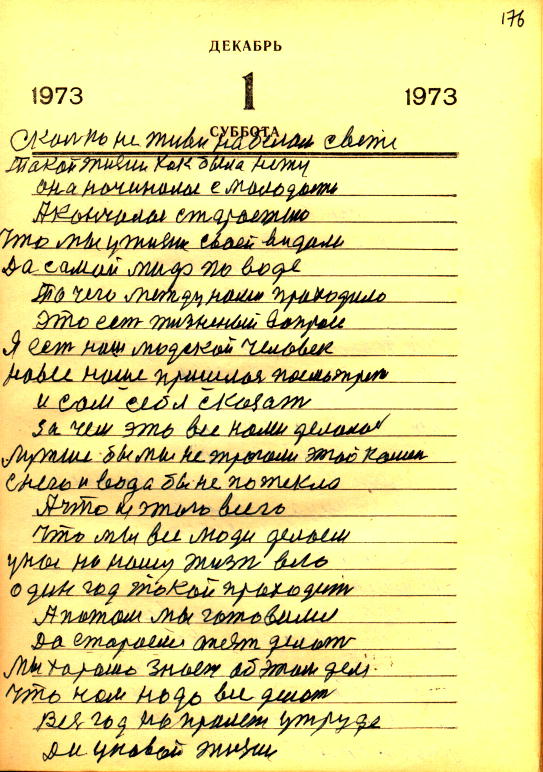 176
ДЕКАБРЬ
1973 1 1973
СУББОТА
Сколко не живи на белом свети
Такой жизни как была нету
она начиналас с молодост
А кончалас старостию
Что мы у жизни своей видали
Да самой миф по воде
То чего между нами проходило
Это ест жизненый вопрос
Я ест наш людской человек
на все наше пришлос посмотрет
и сам себя сказат
За чем это все нами делалос
Лутше бы мы не трогали этой камен
с него и вода бы не потекла
А что из этого всего
Что мы все люди делаем
у нас на нашу жизн
один год такой проходит
А потом мы готовилис
Да стараемс делат
Мы харашо знаем об этом деле
Что нам надо все делат
Вес год мы у труде
Да у новой жизни